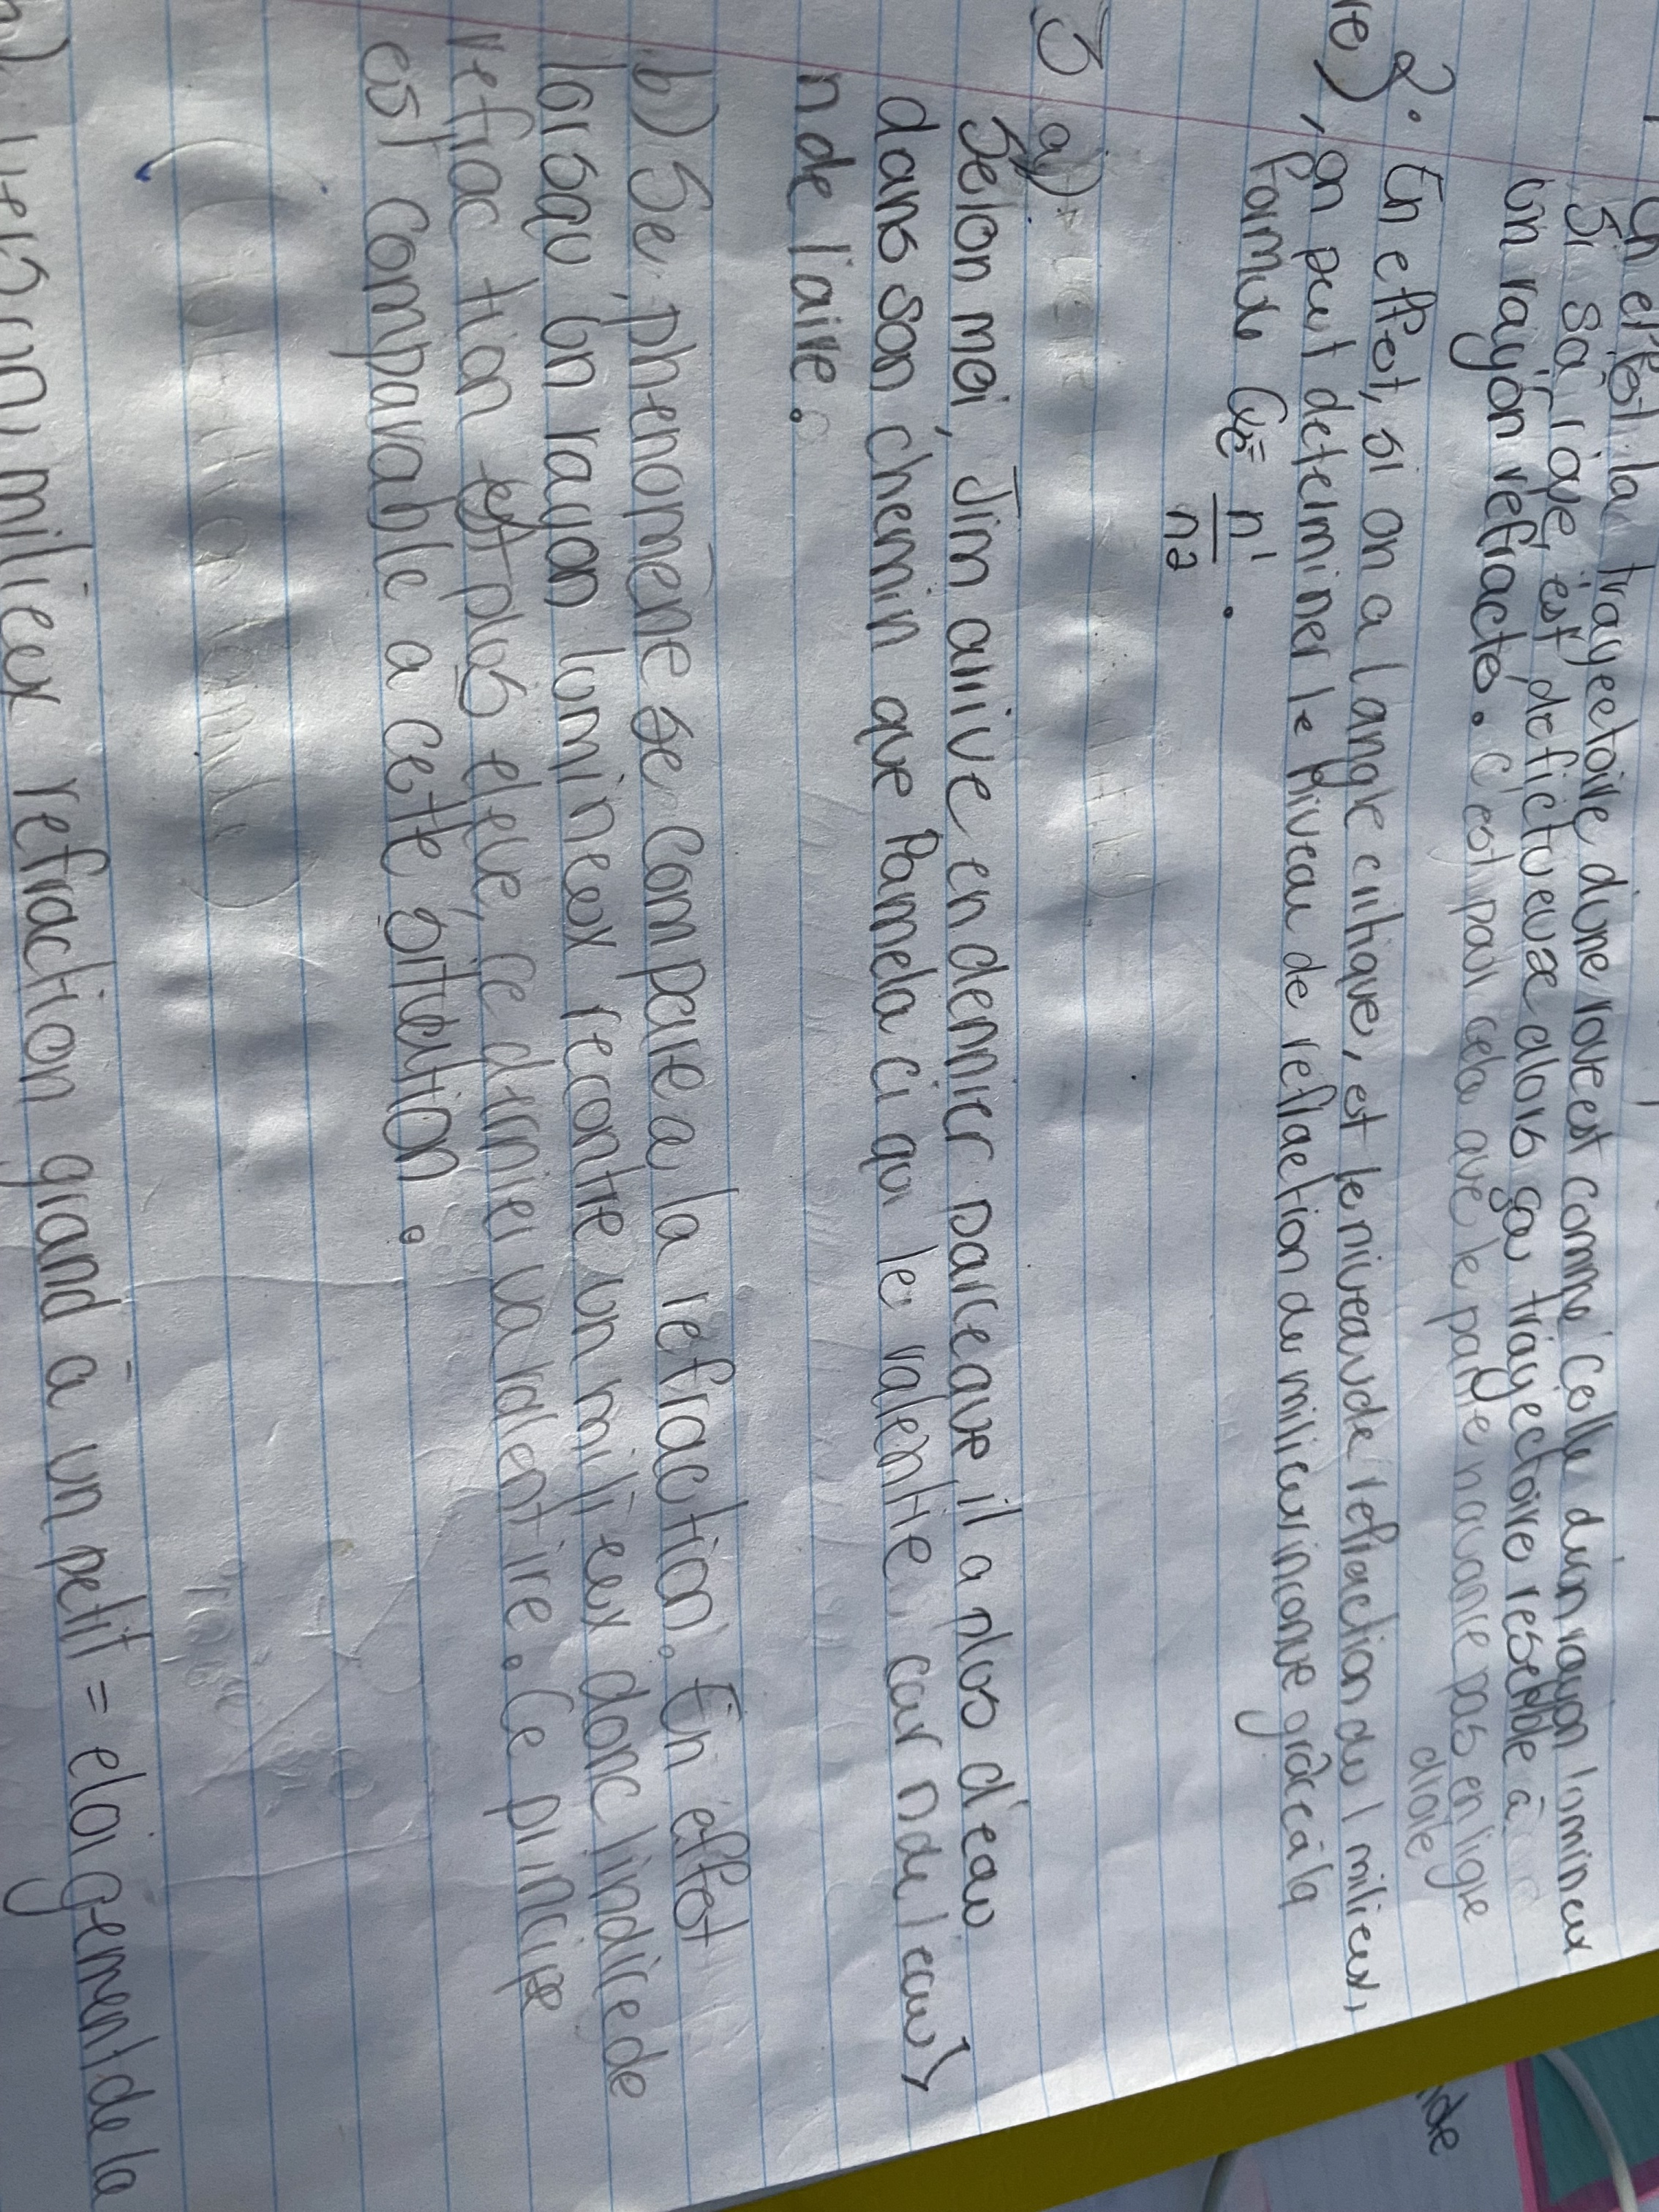 En effet la trayectoire d'une roue est comme celle d'un rayon lumineux
Si sa roue est défictueuse alors sa trayectoire resemble à
un rayon réfracté. C'est pour cela que le patie n'avance pas en ligne
droite
2. En effet, si on a l angle critique, et le niveau de refraction du 1 milieux,
re), on peut determiner le niveau de refraction du milieux inconue grâce à la
formule = n1
n2
3 a)
Selon moi, Jim arrive en dernnier parceque il a plus d'eau
dans son chemin que Pamela ci qui le ralentie, car n de l'eau >
n de l'aire.
b) Se phenomène se compare a la refraction. En effet
lorsqu un rayon lumineux recontre un milieux donc l'indice de
refraction est plus eleve, ce dernier va ralentire. Ce principe
est comparable a cette situation.
milieux refraction grand à un petit = eloignement de la